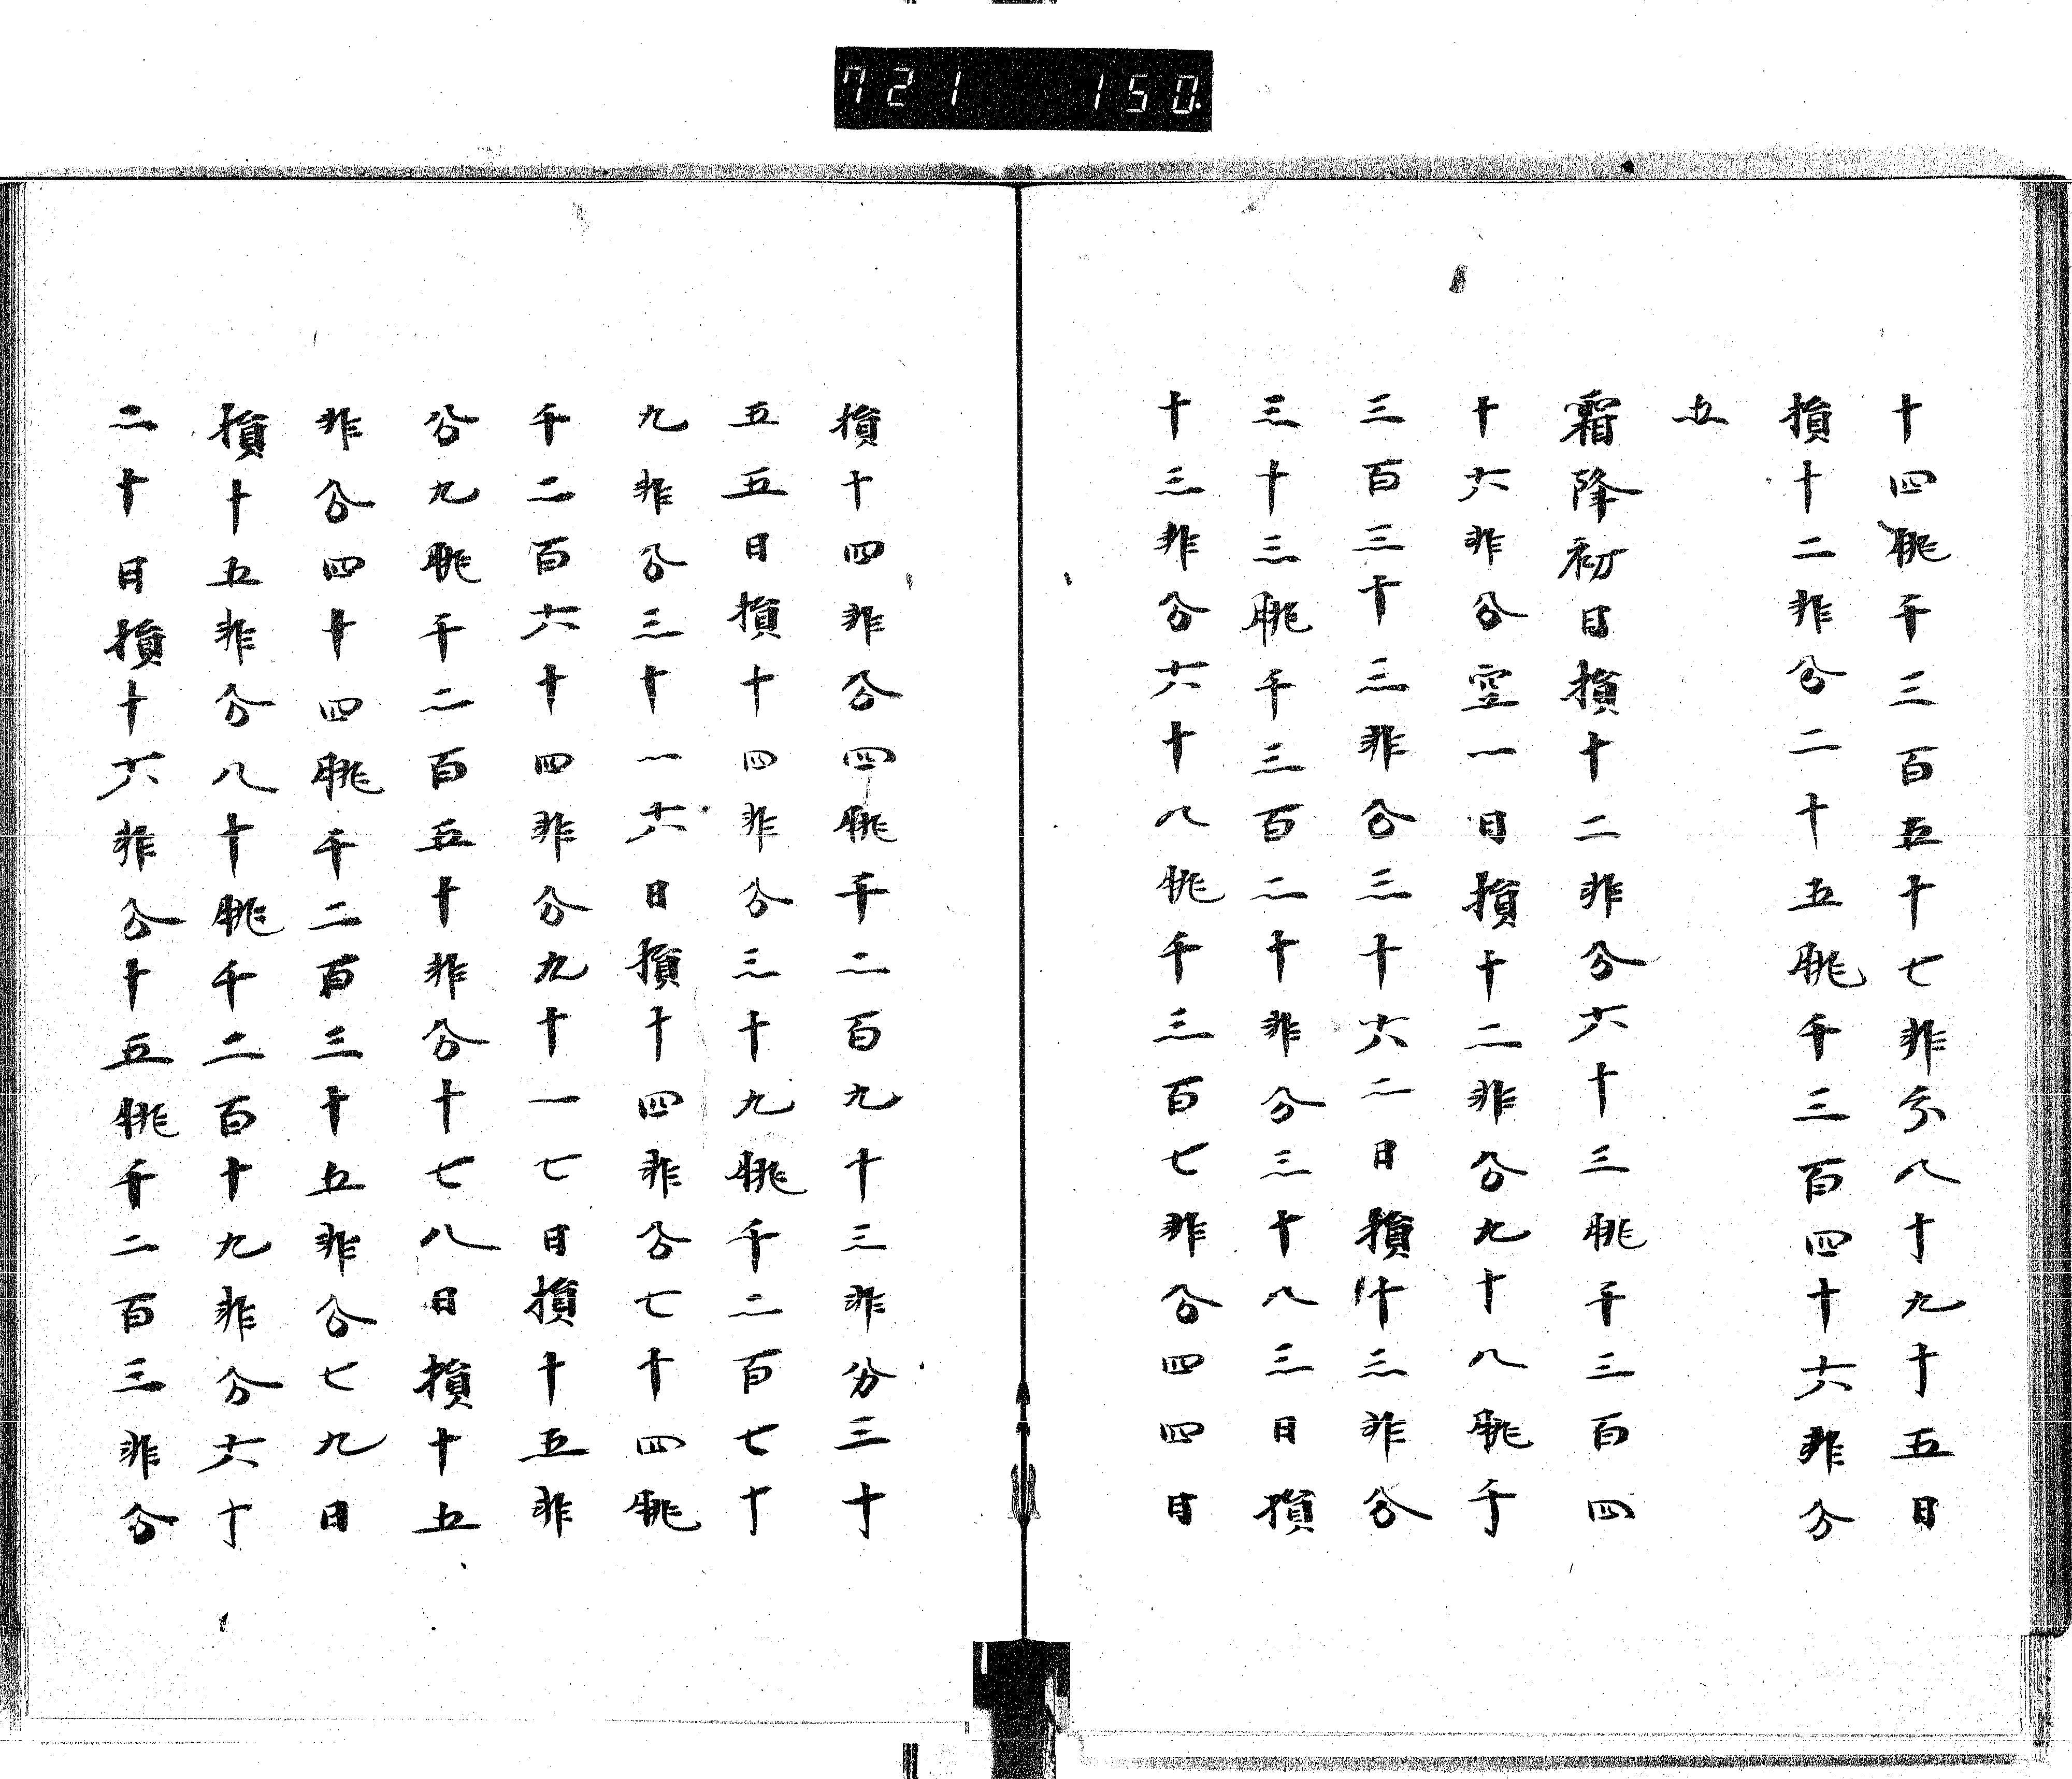 721 150.
十四朓千三百五十七非分八十九十五日
損十二非分二十五朓千三百四十六非分
五
霜降初日損十二非分六十三朓千三百四
十六非分空一日損十二非分九十八朓千
三百三十三非分三十六二日損十三非分
三十三朓千三百二十非分三十八三日損
十三非分六十八朓千三百七非分四四日
損十四非分四朓千二百九十三非分三十
五五日損十四非分三十九朓千二百七十
九非分三十一六日損十四非分七十四朓
千二百六十四非分九十一七日損十五非
分九朓千二百五十非分十七八日損十五
非分四十四朓千二百三十五非分七九日
損十五非分八十朓千二百十九非分六十
二十日損十六非分十五朓千二百三非分